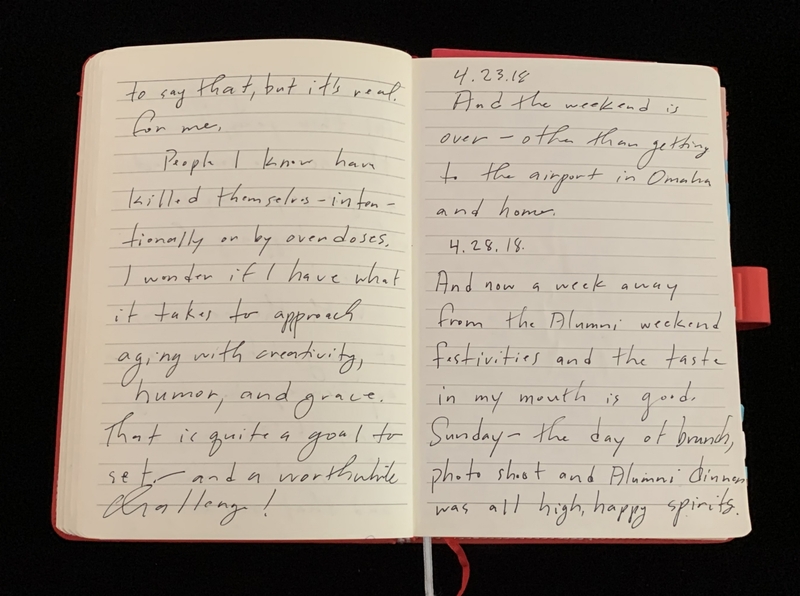 to say that, but it's real.
for me.
People I know have
killed themselves - inten-
tionally or by overdoses.
I wonder if I have what
it takes to approach
aging with creativity,
humor, and grace.
That is quite a goal to
set - and a worthwhile
challenge!
4.23.18
And the weekend is
over - other than getting
to the airport in Omaha
and home.
4.28.18.
And now a week away
from the Alumni weekend
festivities and the taste
in my mouth is good.
Sunday - the day of brunch,
photo shoot and Alumni dinner
was all high, happy spirits.